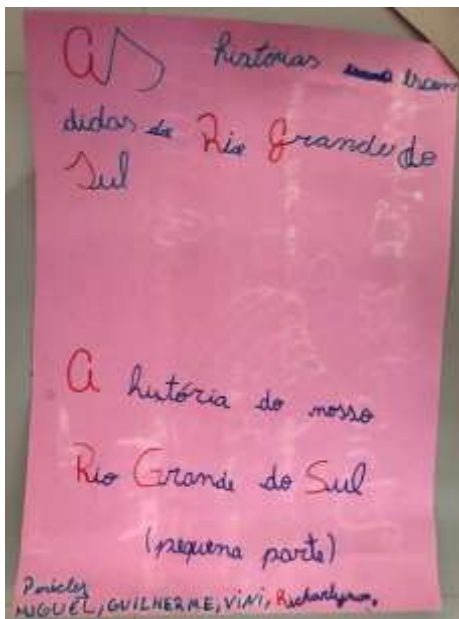 As histórias escon
didas do Rio Grande do
Sul
A história do nosso
Rio Grande do Sul
(pequena parte)
Péricles
MIGUEL, GUILHERME, VINI,